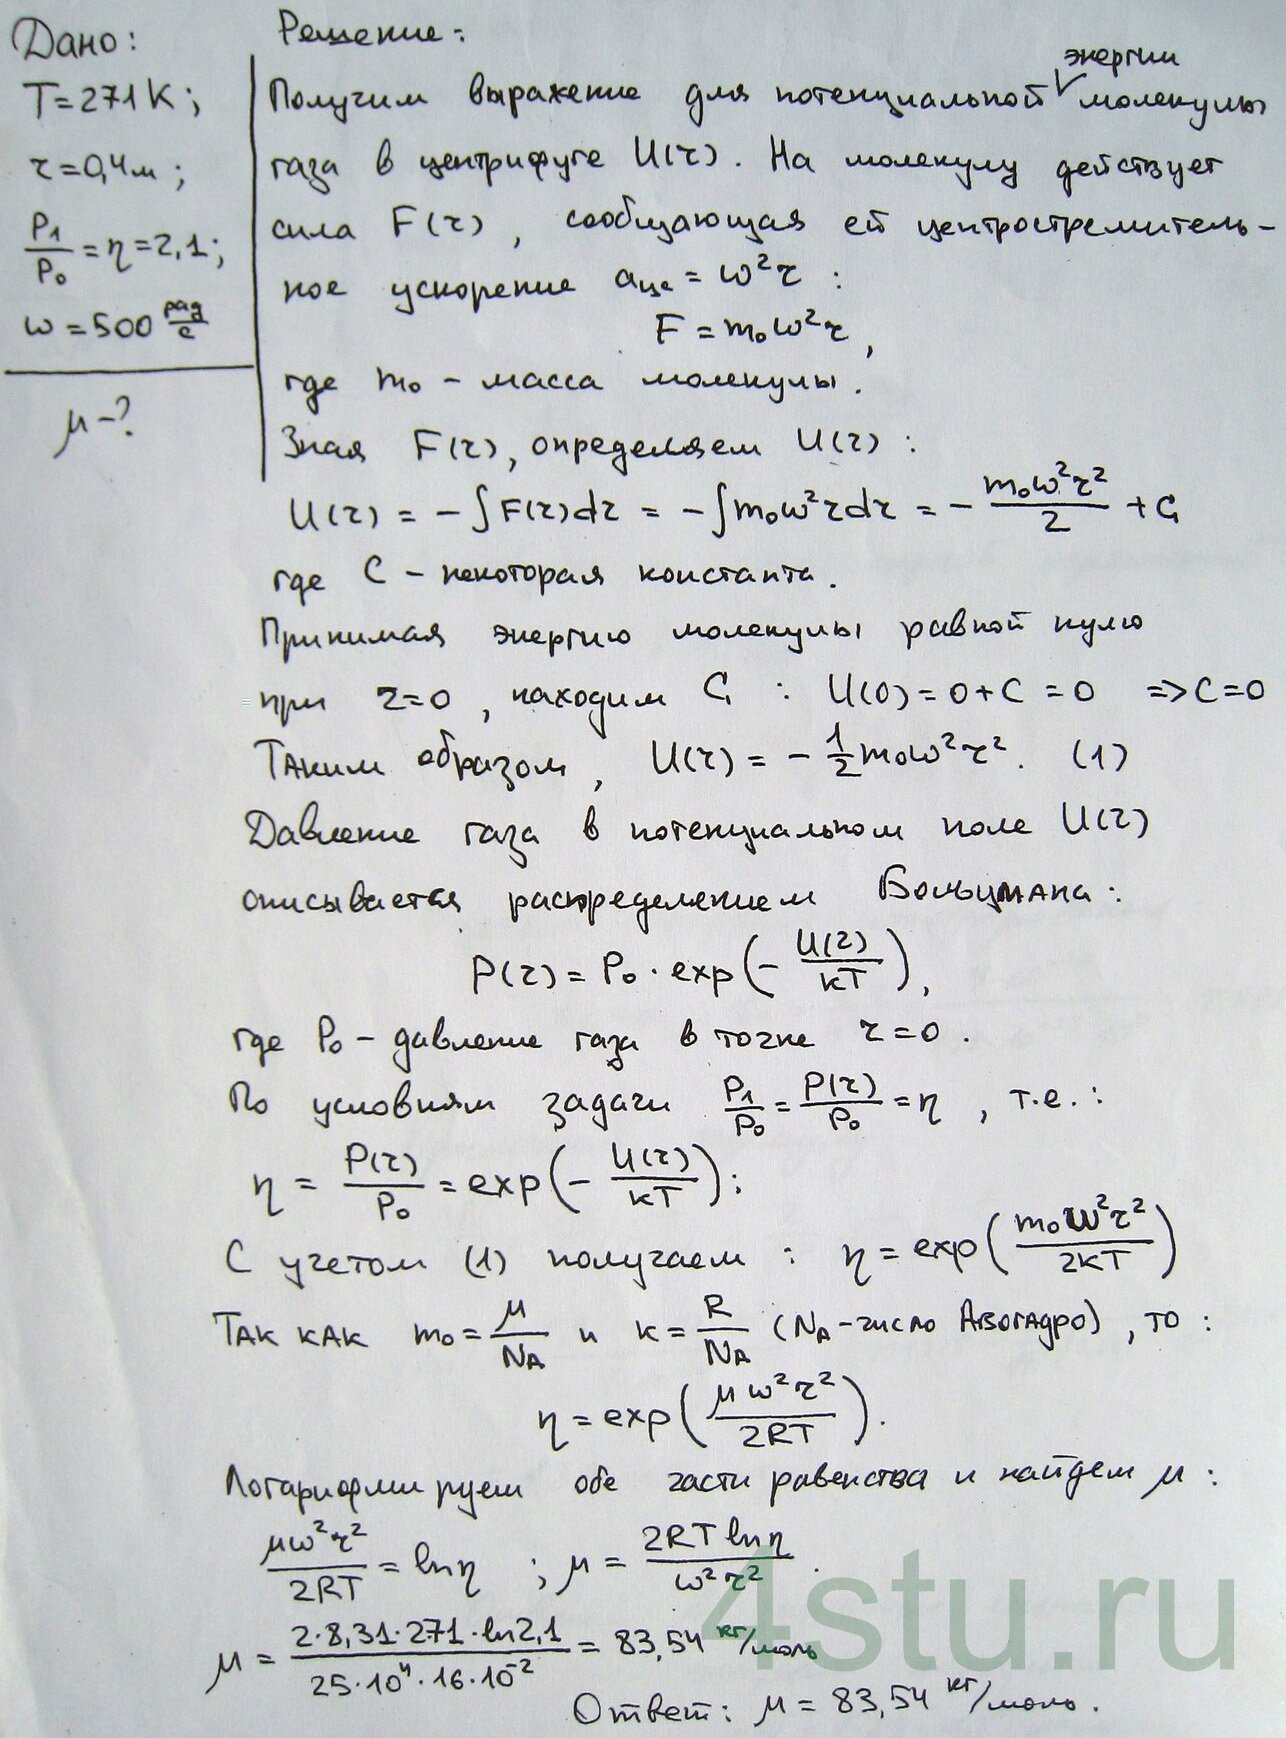 Дано:
T=271К;
r=0,4м;
P₁/P₀=η=2,1;
ω=500 рад/с
μ-?
Решение:
Получим выражение для потенциальной энергии молекулы
газа в центрифуге U(r). На молекулу действует
сила F(r), сообщающая ей центростремитель-
ное ускорение aцс=ω²r:
F=m₀ω²r,
где m₀ - масса молекулы.
Зная F(r), определяем U(r):
U(r) = -∫F(r)dr = -∫m₀ω²rdr = - m₀ω²r²/2 + C,
где C - некоторая константа.
Принимая энергию молекулы равной нулю
при r=0, находим C: U(0)=0+C=0 => C=0
Таким образом, U(r)= - 1/2 m₀ω²r². (1)
Давление газа в потенциальном поле U(r)
описывается распределением Больцмана:
P(r)=P₀·exp(- U(r)/kT),
где P₀ - давление газа в точке r=0.
По условиям задачи P₁/P₀ = P(r)/P₀ = η, т.е.:
η = P(r)/P₀ = exp(- U(r)/kT);
С учетом (1) получаем: η = exp(m₀ω²r²/2kT)
Так как m₀ = μ/NA и k = R/NA (NA - число Авогадро), то:
η = exp(μω²r²/2RT).
Логарифмируем обе части равенства и найдем μ:
μω²r²/2RT = lnη ; μ = 2RT lnη/ω²r².
μ = 2·8,31·271·ln2,1/25·10⁴·16·10⁻² = 83,54 кг/моль
Ответ: μ = 83,54 кг/моль.
4stu.ru